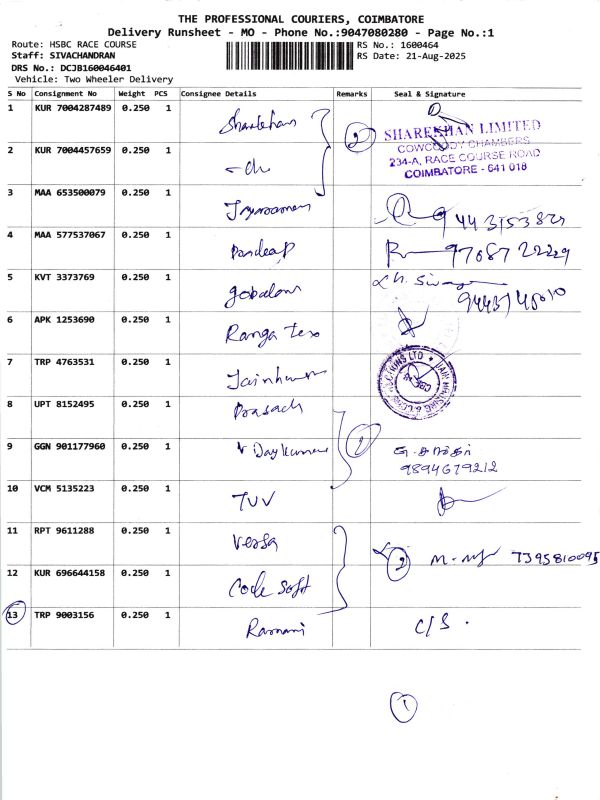 THE PROFESSIONAL COURIERS, COIMBATORE
Delivery Runsheet - MO - Phone No.:9047080280 - Page No.:1
Route: HSBC RACE COURSE
RS No.: 1600464
Staff: SIVACHANDRAN
RS Date: 21-Aug-2025
DRS No.: DCJB160046401
Vehicle: Two Wheeler Delivery
S No Consignment No Weight PCS Consignee Details Remarks Seal & Signature
1 KUR 7004287489 0.250 1 Sharekhan 2
SHAREKHAN LIMITED
COWCOODY CHAMBERS
234-A, RACE COURSE ROAD
COIMBATORE - 641 018
2 KUR 7004457659 0.250 1 -do
3 MAA 653500079 0.250 1
4 MAA 577537067 0.250 1 Pandeap 97087 22229
5 KVT 3373769 0.250 1 gobalan
6 APK 1253690 0.250 1 Ranga Tex
7 TRP 4763531 0.250 1 Jainhum
8 UPT 8152495 0.250 1 Prasach
9 GGN 901177960 0.250 1 Daykumar
9894679212
10 VCM 5135223 0.250 1 TUV
11 RPT 9611288 0.250 1 Versa 2 7395810095
12 KUR 696644158 0.250 1 Code Soft
13 TRP 9003156 0.250 1 Ramani C/S.
1